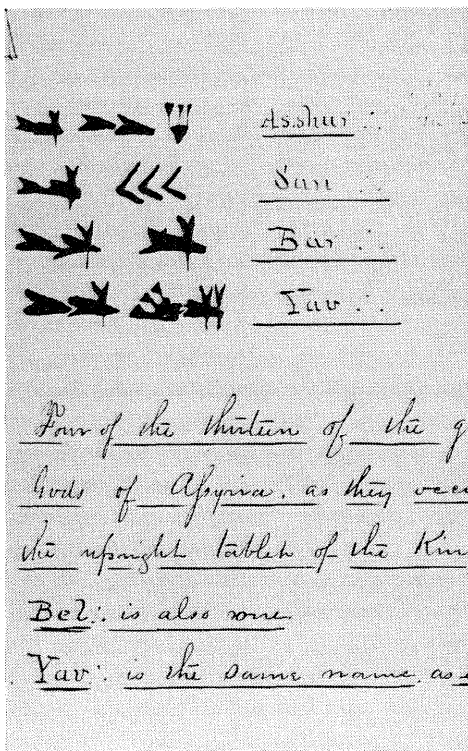 Asshur ∴
San ∴
Bar ∴
Yav ∴
Four of the thirteen of the g
Gods of Assyria. as they occu
the upright tablet of the Kin
Bel ∴ is also one.
Yav ∴ is the same name, as